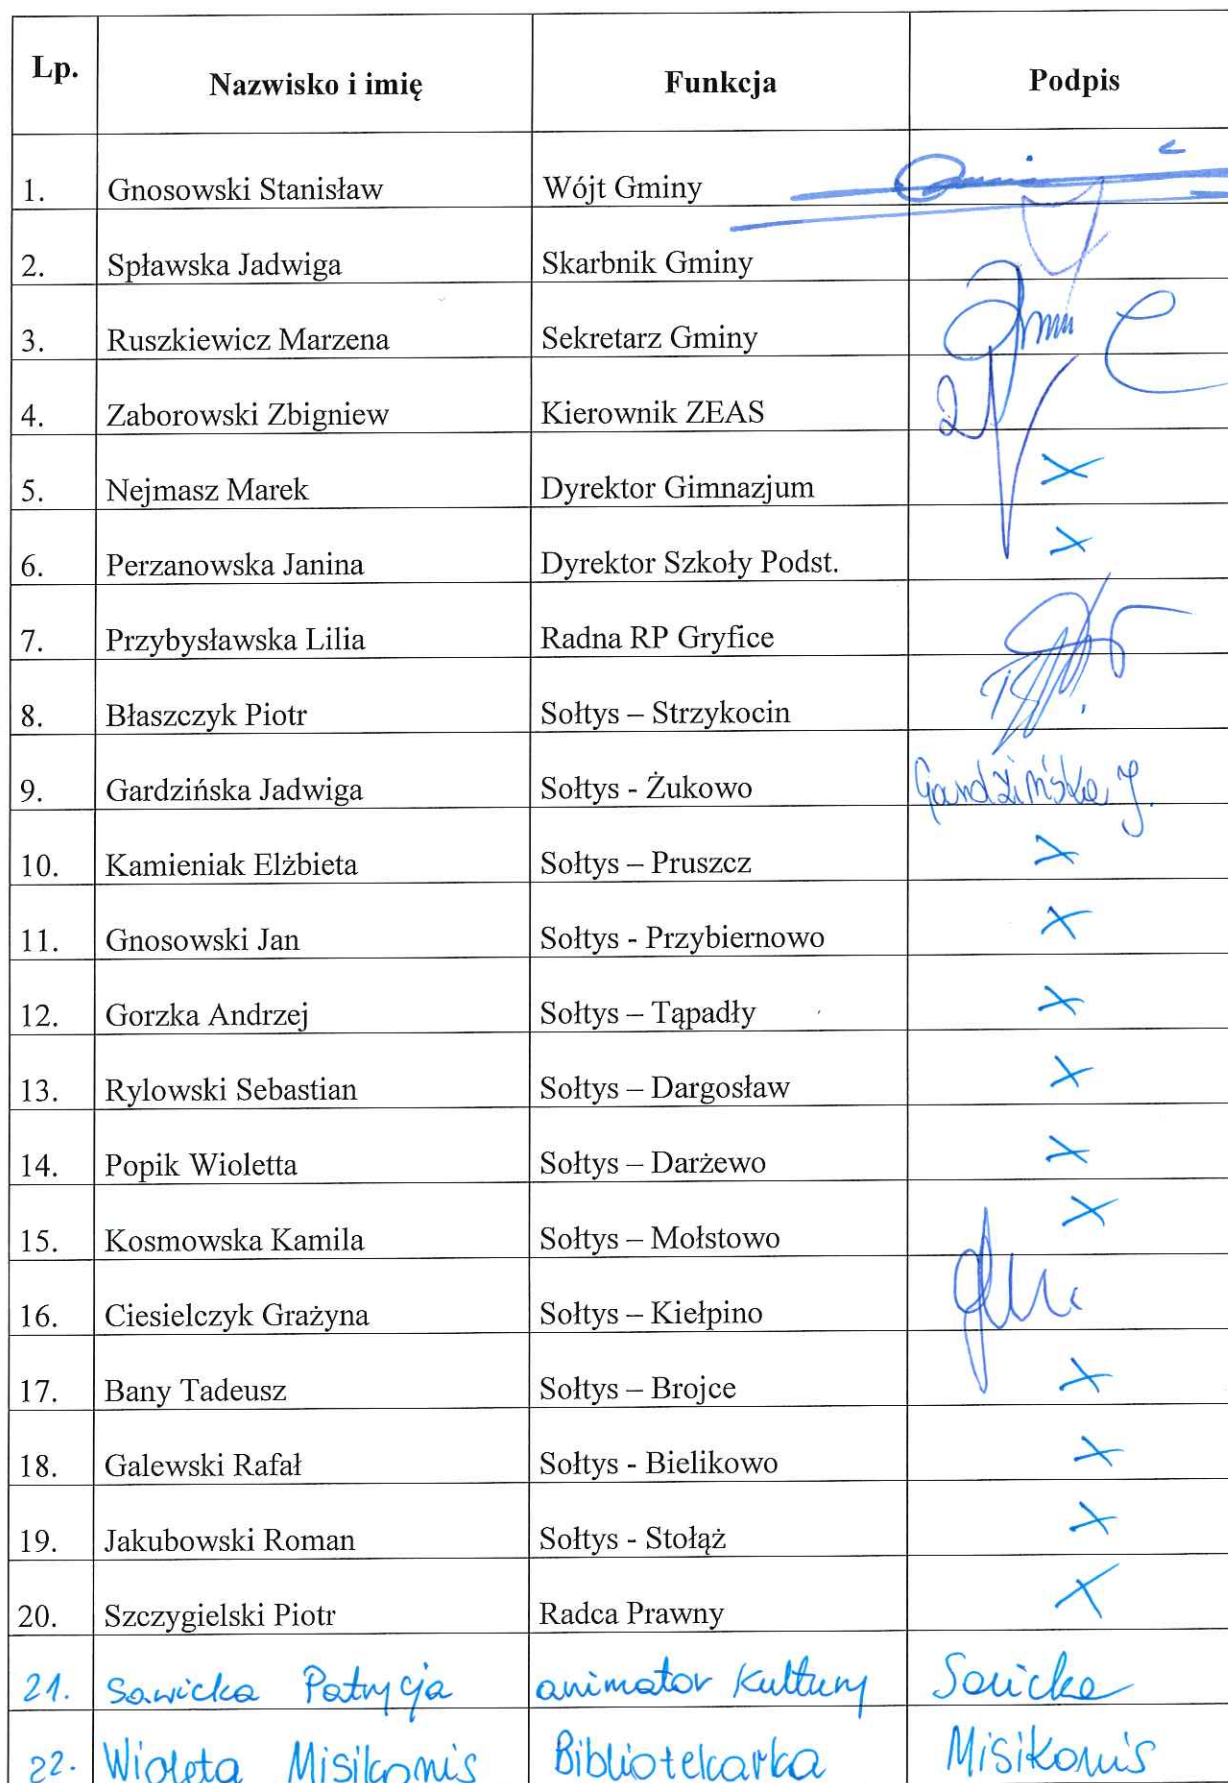 Lp. Nazwisko i imię Funkcja Podpis
1. Gnosowski Stanisław Wójt Gminy
2. Spławska Jadwiga Skarbnik Gminy
3. Ruszkiewicz Marzena Sekretarz Gminy
4. Zaborowski Zbigniew Kierownik ZEAS
5. Nejmasz Marek Dyrektor Gimnazjum X
6. Perzanowska Janina Dyrektor Szkoły Podst. X
7. Przybysławska Lilia Radna RP Gryfice
8. Błaszczyk Piotr Sołtys – Strzykocin
9. Gardzińska Jadwiga Sołtys - Żukowo Gardzińska J.
10. Kamieniak Elżbieta Sołtys – Pruszcz X
11. Gnosowski Jan Sołtys - Przybiernowo X
12. Gorzka Andrzej Sołtys – Tąpadły X
13. Rylowski Sebastian Sołtys – Dargosław X
14. Popik Wioletta Sołtys – Darżewo X
15. Kosmowska Kamila Sołtys – Mołstowo X
16. Ciesielczyk Grażyna Sołtys – Kiełpino
17. Bany Tadeusz Sołtys – Brojce X
18. Galewski Rafał Sołtys - Bielikowo X
19. Jakubowski Roman Sołtys - Stołąż X
20. Szczygielski Piotr Radca Prawny X
21. Sawicka Patrycja animator Kultury Sawicka
22. Wioleta Misikonis Bibliotekarka Misikonis